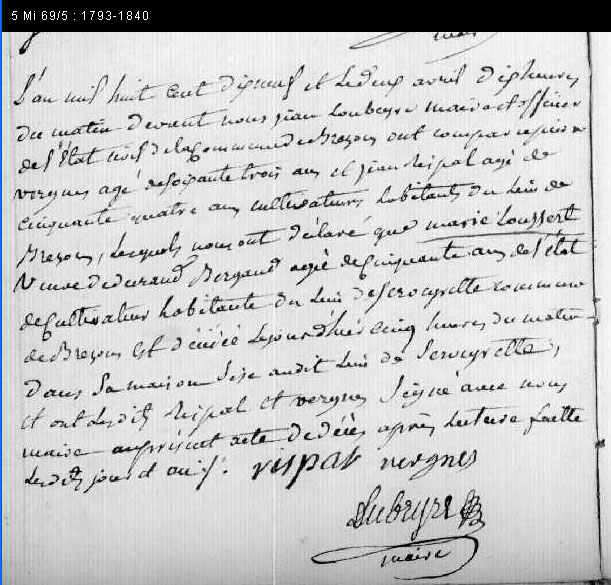 5 Mi 69/5 : 1793-1840
maire
L'an mil huit cent dixneuf et le deux avril dix heures
du matin devant nous jean Loubeyre maire et officier
de l'état civil de la commune de Brezons ont comparu pierre
vergnes agé de soixante trois ans et jean Rispal agé de
cinquante quatre ans cultivateurs habitants du lieu de
Brezons, lesquels nous ont déclaré que marie Loussert
Veuve de durand Bergaud agée de cinquante ans de l'état
de cultivateur habitante du lieu de Serouyrelle commune
de Brezons est décédée le jour d'hier cinq heures du matin
dans sa maison sise audit lieu de Serouyrelle,
et ont lesdits Rispal et vergnes signé avec nous
maire au présent acte de décès après lecture faitte
lesdits jour et an /. rispal vergnes
Lubeyre
maire